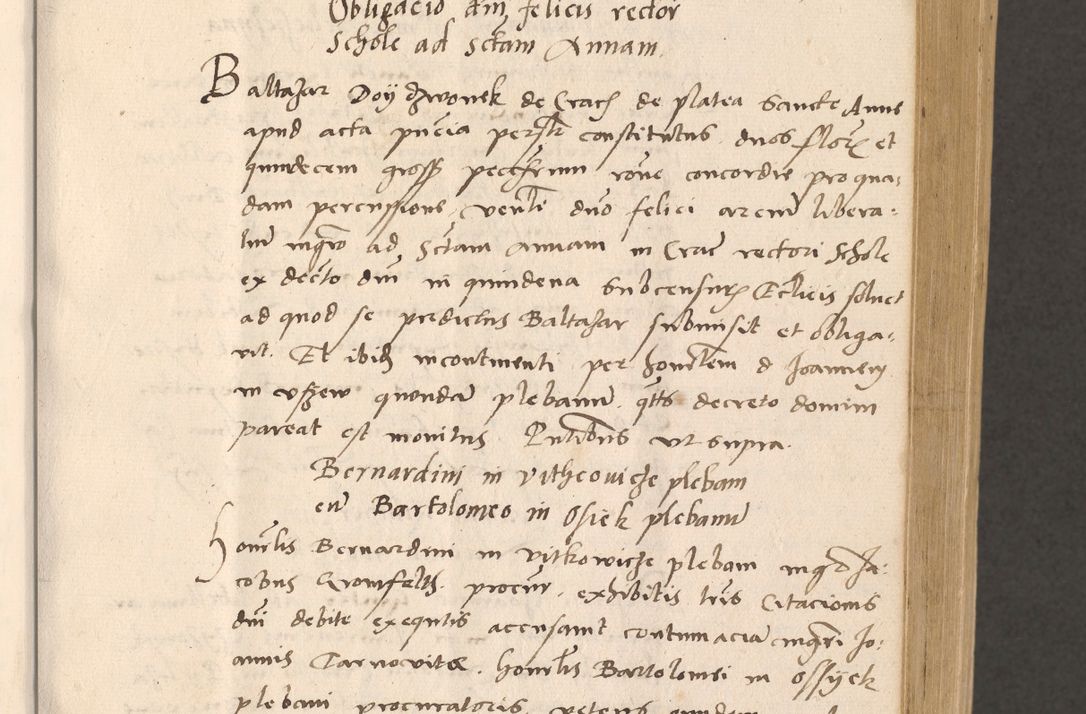 Obligacio dni felicis rector
Schole ad Sctam Annam
Baltazar Doÿ dzwonek de Crac de platea Sancte Anne
apud acta pncia persolr constitutus duos floros et
quindecem gross peccuniarum rone concordie pro qua-
dam percussione, venli dno felici arcium libera-
lium mgro ad Sctam Annam in Crac rectori Schole
ex decto dni in quindena sub censuris Ecclicis soluet
ad quod se predictus Baltazar submisit et obliga-
vit. Et ibid incontinenti per honorlem d Joannem
in quondam plebanum, qtts decreto domini
pareat est monitus. Pntibus ut supra.
Bernardini in Vitheouicze plebani
cum Bartolomeo in Osiek plebanum
Honorlis Bernardini in Vitkowicze plebani mgr Ja-
cobus Cromfeltd procur, exhibitis lris Citacionis
dni debite exequtis accusauit contumaciam mgri Jo-
annis Tarnovite, honorlis Bartolomei in Ossÿek
plebani procuratoris